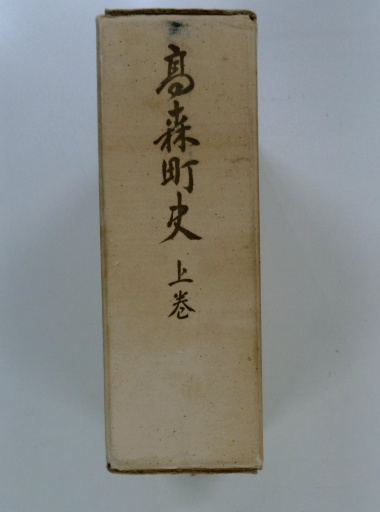 髙森町史 上巻